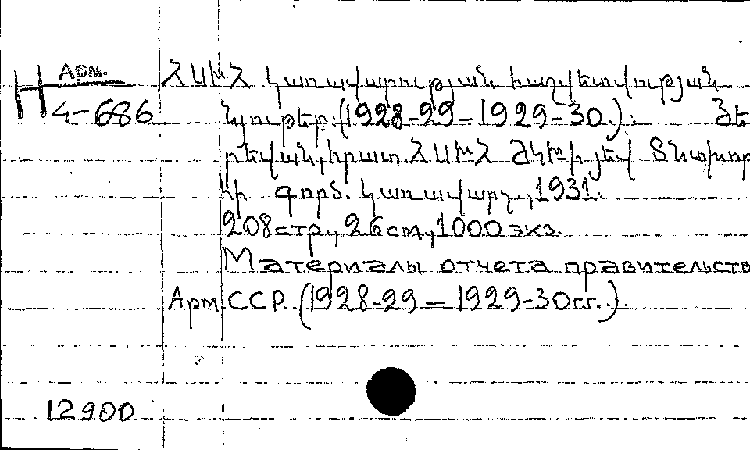 Арм.
Н 4-686
ՀՍԽՀ կառավարության հաշվետվության
նյութեր (1928-29 – 1929-30.): Յե
րևան, հրատ. ՀՍԽՀ ԺԿԽ-ի յեվ Տնտխոր
հի գործ. կառավարչ., 1931.
208 стр., 26 см, 1000 экз.
Материалы отчета правительств
Арм. ССР. (1928-29 – 1929-30 гг.)
12900